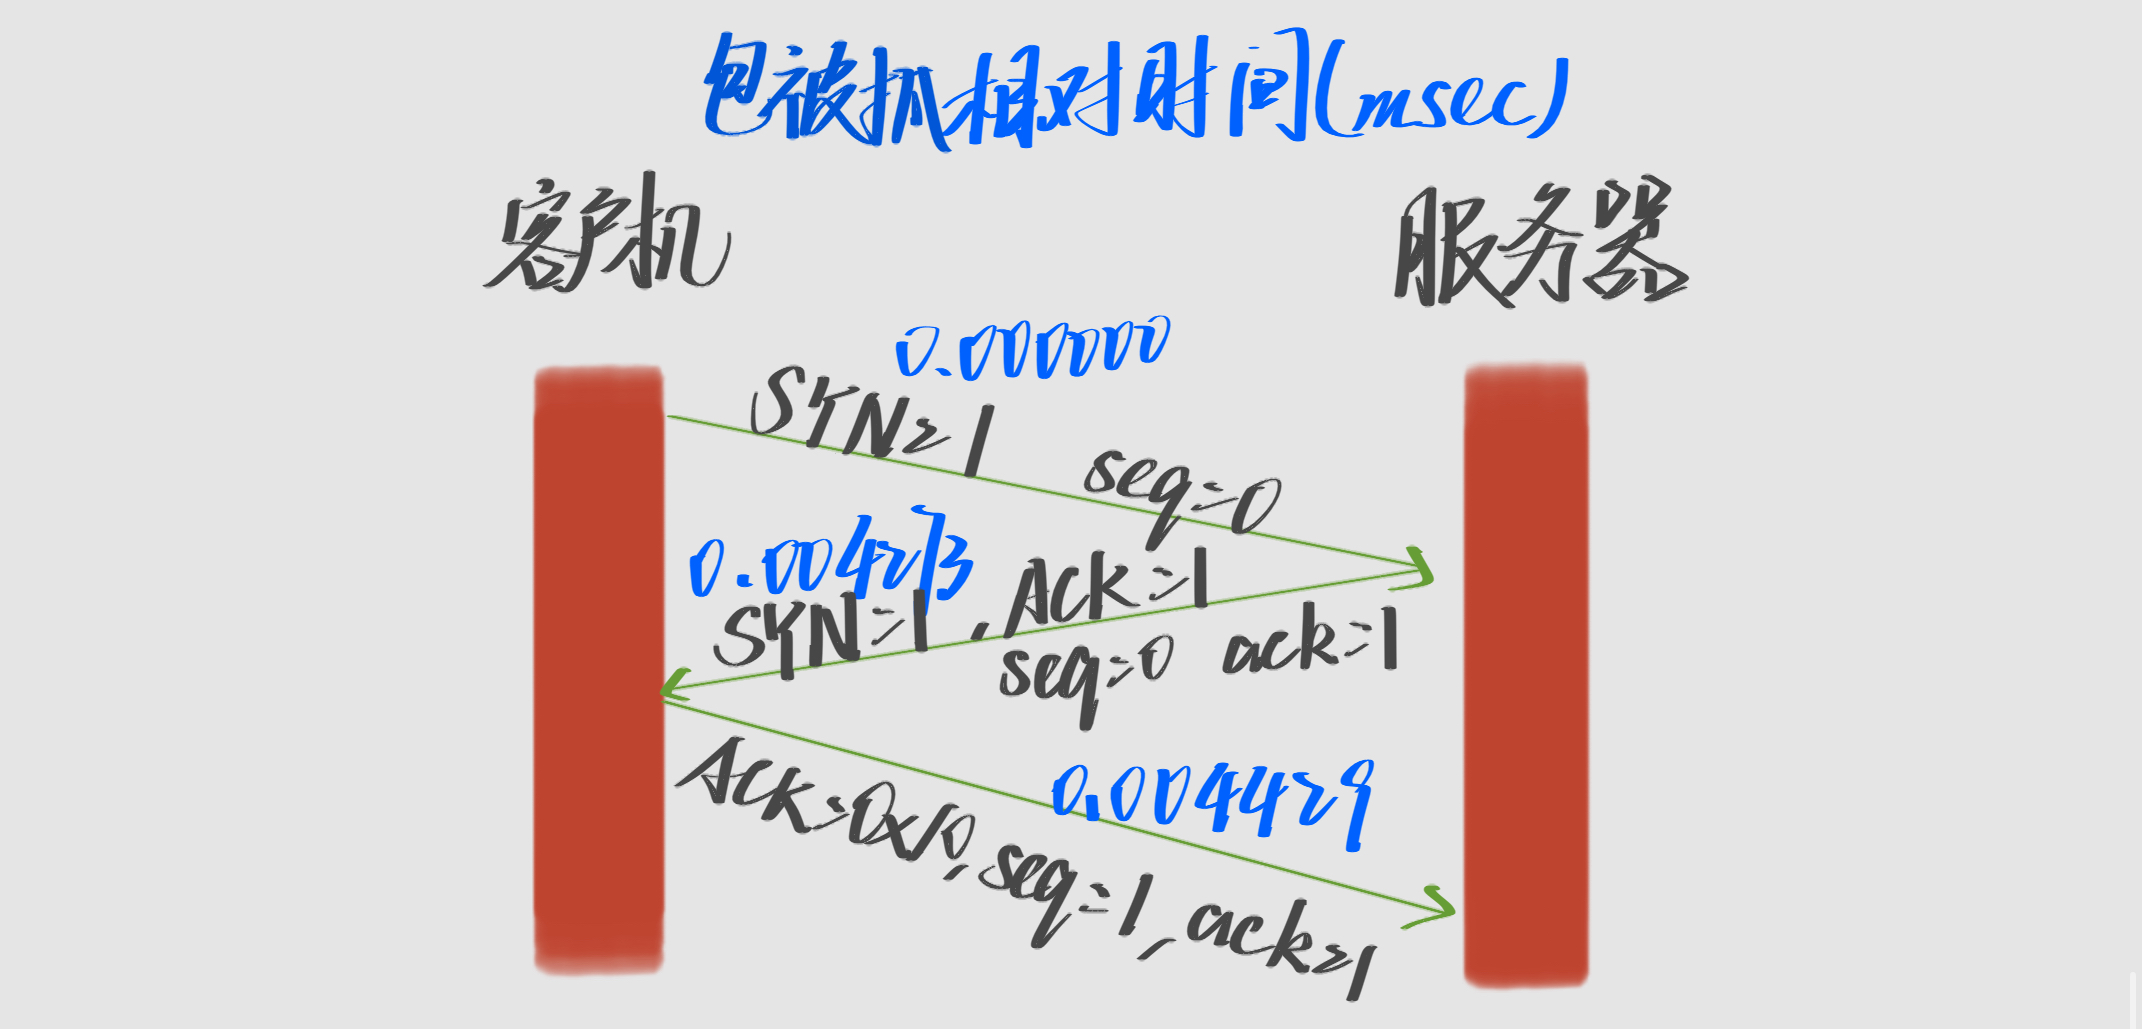 包被抓相对时间(msec)
客户机
服务器
0.000000
SYN=1 seq=0
0.004273
SYN=1,ACK=1
seq=0 ack=1
0.004429
ACK=0x10,seq=1,ack=1